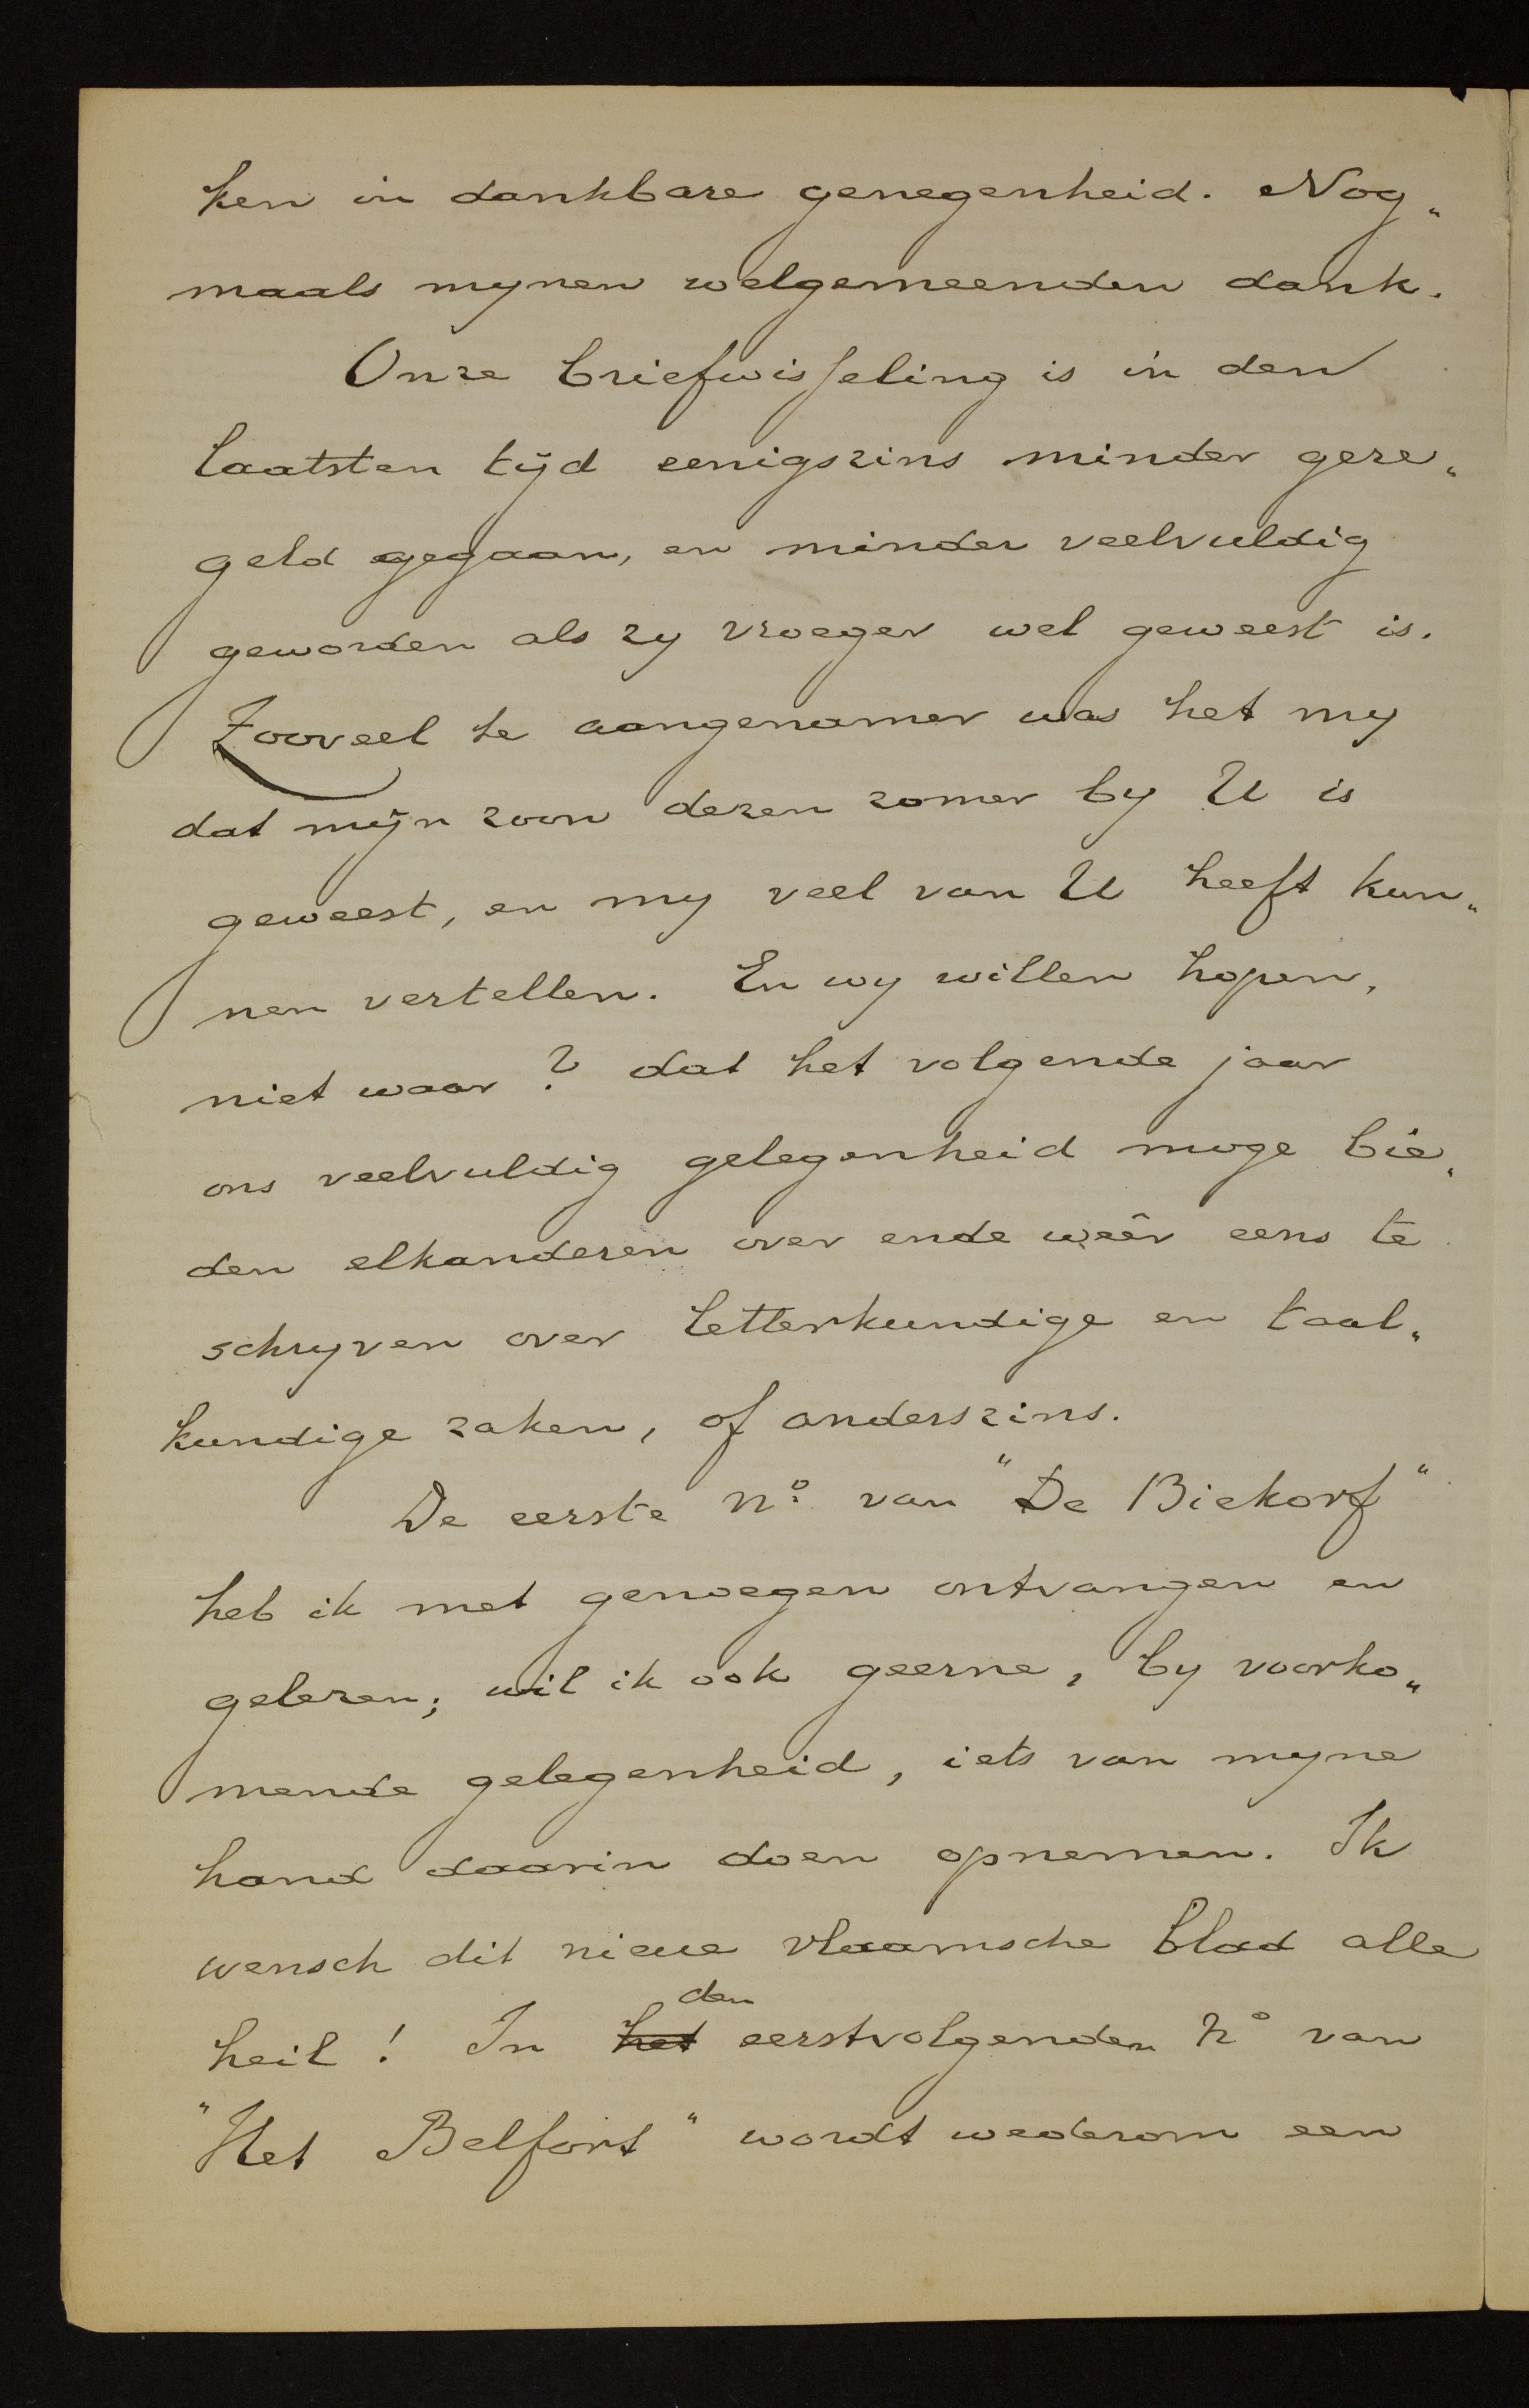 ken in dankbare genegenheid. Nog„
maals mynen welgemeenden dank.
Onze briefwisseling is in den
laatsten tijd eenigszins minder gere„
geld gegaan, en minder veelvuldig
geworden als zy vroeger wel geweest is.
Zooveel te aangenamer was het my
dat mijn zoon dezen zomer by U is
geweest, en my veel van U heeft kun„
nen vertellen. En wy willen hopen,
niet waar? dat het volgende jaar
ons veelvuldig gelegenheid moge bie„
den elkanderen over ende weêr eens te
schryven over letterkundige en taal„
kundige zaken, of anderszins.
De eerste No. van "De Biekorf"
heb ik met genoegen ontvangen en
gelezen; wil ik ook geerne, by voorko„
mende gelegenheid, iets van myne
hand daarin doen opnemen. Ik
wensch dit nieue vlaamsche blad alle
heil! In het den eerstvolgenden No van
"Het Belfort" wordt wederom een